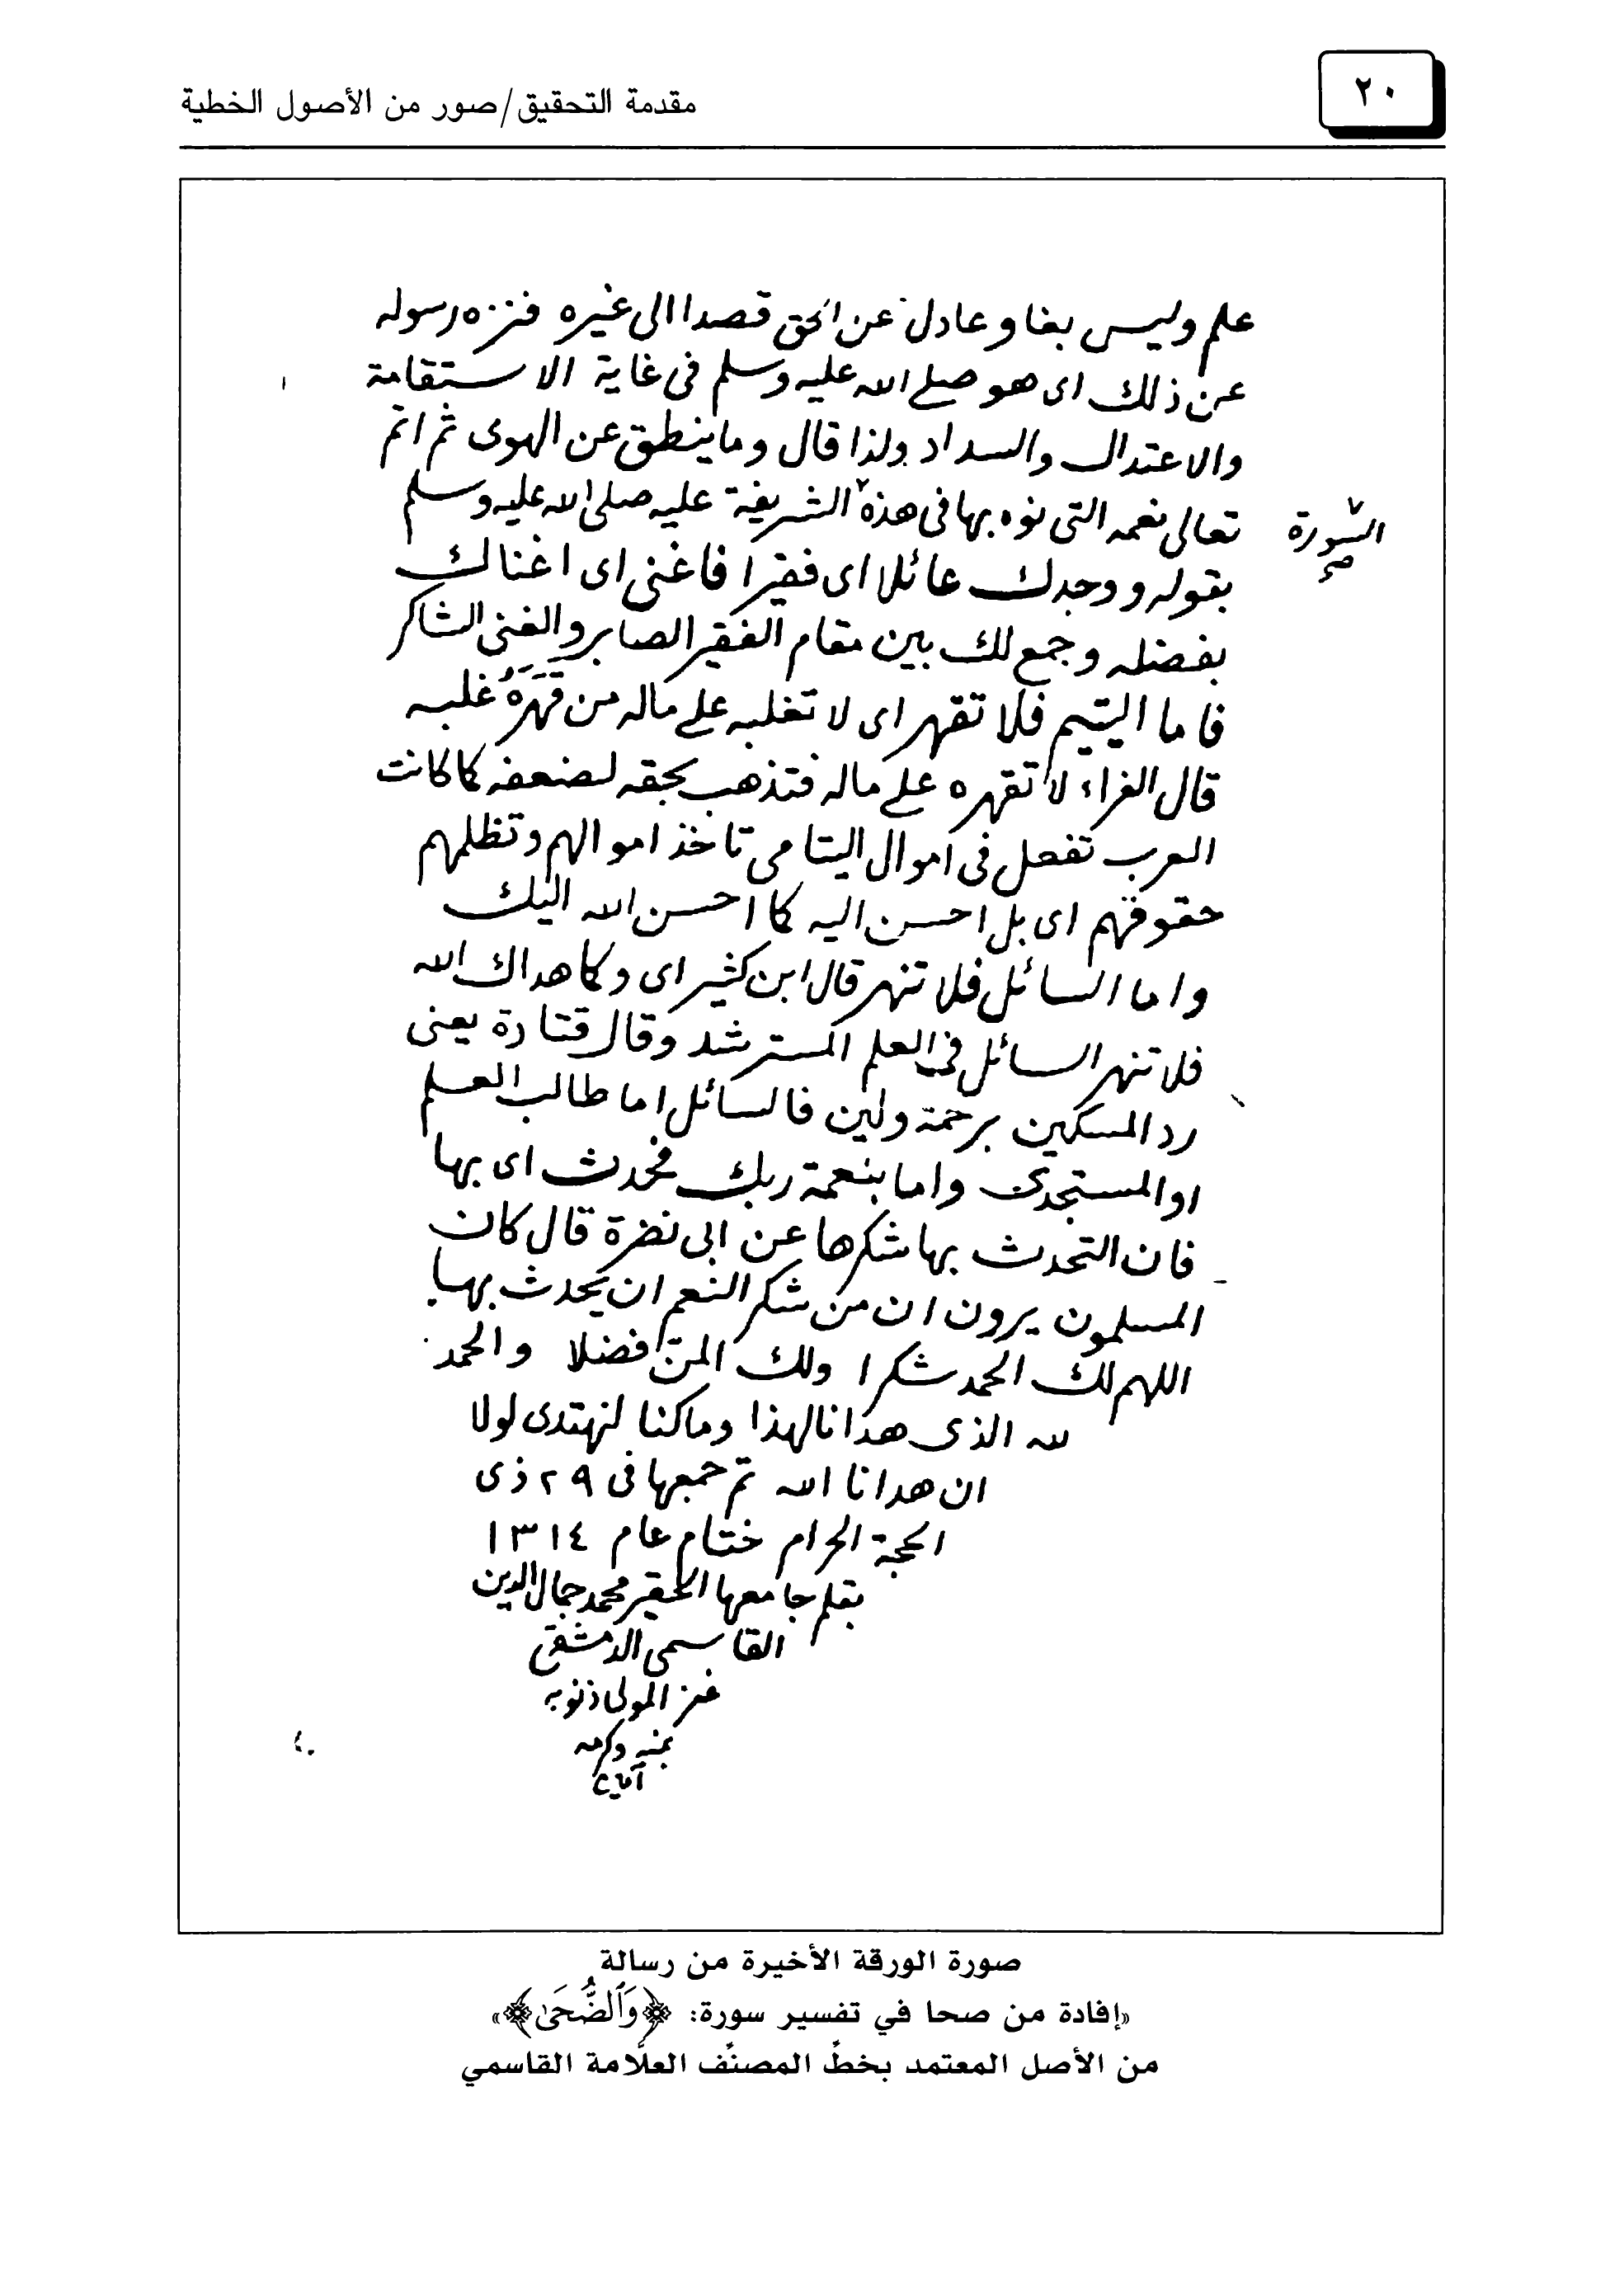 ٢٠
مقدمة التحقيق/صور من الأصول الخطية
علم وليس بغاو عادل عن الحق قصدا الى غيره فنزه رسوله
عن ذلك اى هو صلى الله عليه وسلم فى غاية الاستقامة
والاعتدال والسداد ولذا قال وما ينطق عن الهوى ثم اتم
تعالى نعمه التى نوه بها فى هذه الشريفة عليه صلى الله عليه وسلم
السورة
صح
بقوله ووجدك عائلا اى فقيرا فاغنى اى اغناك
بفضله وجمع لك بين مقام الفقير الصابر والغنى الشاكر
فاما اليتيم فلا تقهر اى لا تغلبه على ماله من قَهَرَهُ غلبه
قال الفراء لا تقهره على ماله فتذهب بحقه لضعفه كما كانت
العرب تفعل فى اموال اليتامى تاخذ اموالهم وتظلمهم
حقوقهم اى بل احسن اليه كما احسن الله اليك
واما السائل فلا تنهر قال ابن كثير اى وكما هداك الله
فلا تنهر السائل فى العلم المسترشد وقال قتادة يعنى
رد المسكين برحمة ولين فالسائل اما طالب العلم
او المستجدى واما بنعمة ربك فحدث اى بها
فان التحدث بها شكرها عن ابى نضرة قال كان
المسلمون يرون ان من شكر النعم ان يحدث بها
اللهم لك الحمد شكرا ولك المنّ فضلا والحمد
لله الذى هدانا لهذا وما كنا لنهتدى لولا
ان هدانا الله تم جمعها فى ٢٩ ذى
الحجة الحرام ختام عام ١٣١٤
بقلم جامعها الحقير محمد جمال الدين
القاسمى الدمشقى
غفر المولى ذنوبه
بمنه وكرمه
آمين
٤٠
صورة الورقة الأخيرة من رسالة
«إفادة من صحا في تفسير سورة: ﴿وَٱلضُّحَىٰ﴾»
من الأصل المعتمد بخطِّ المصنِّف العلَّامة القاسمي